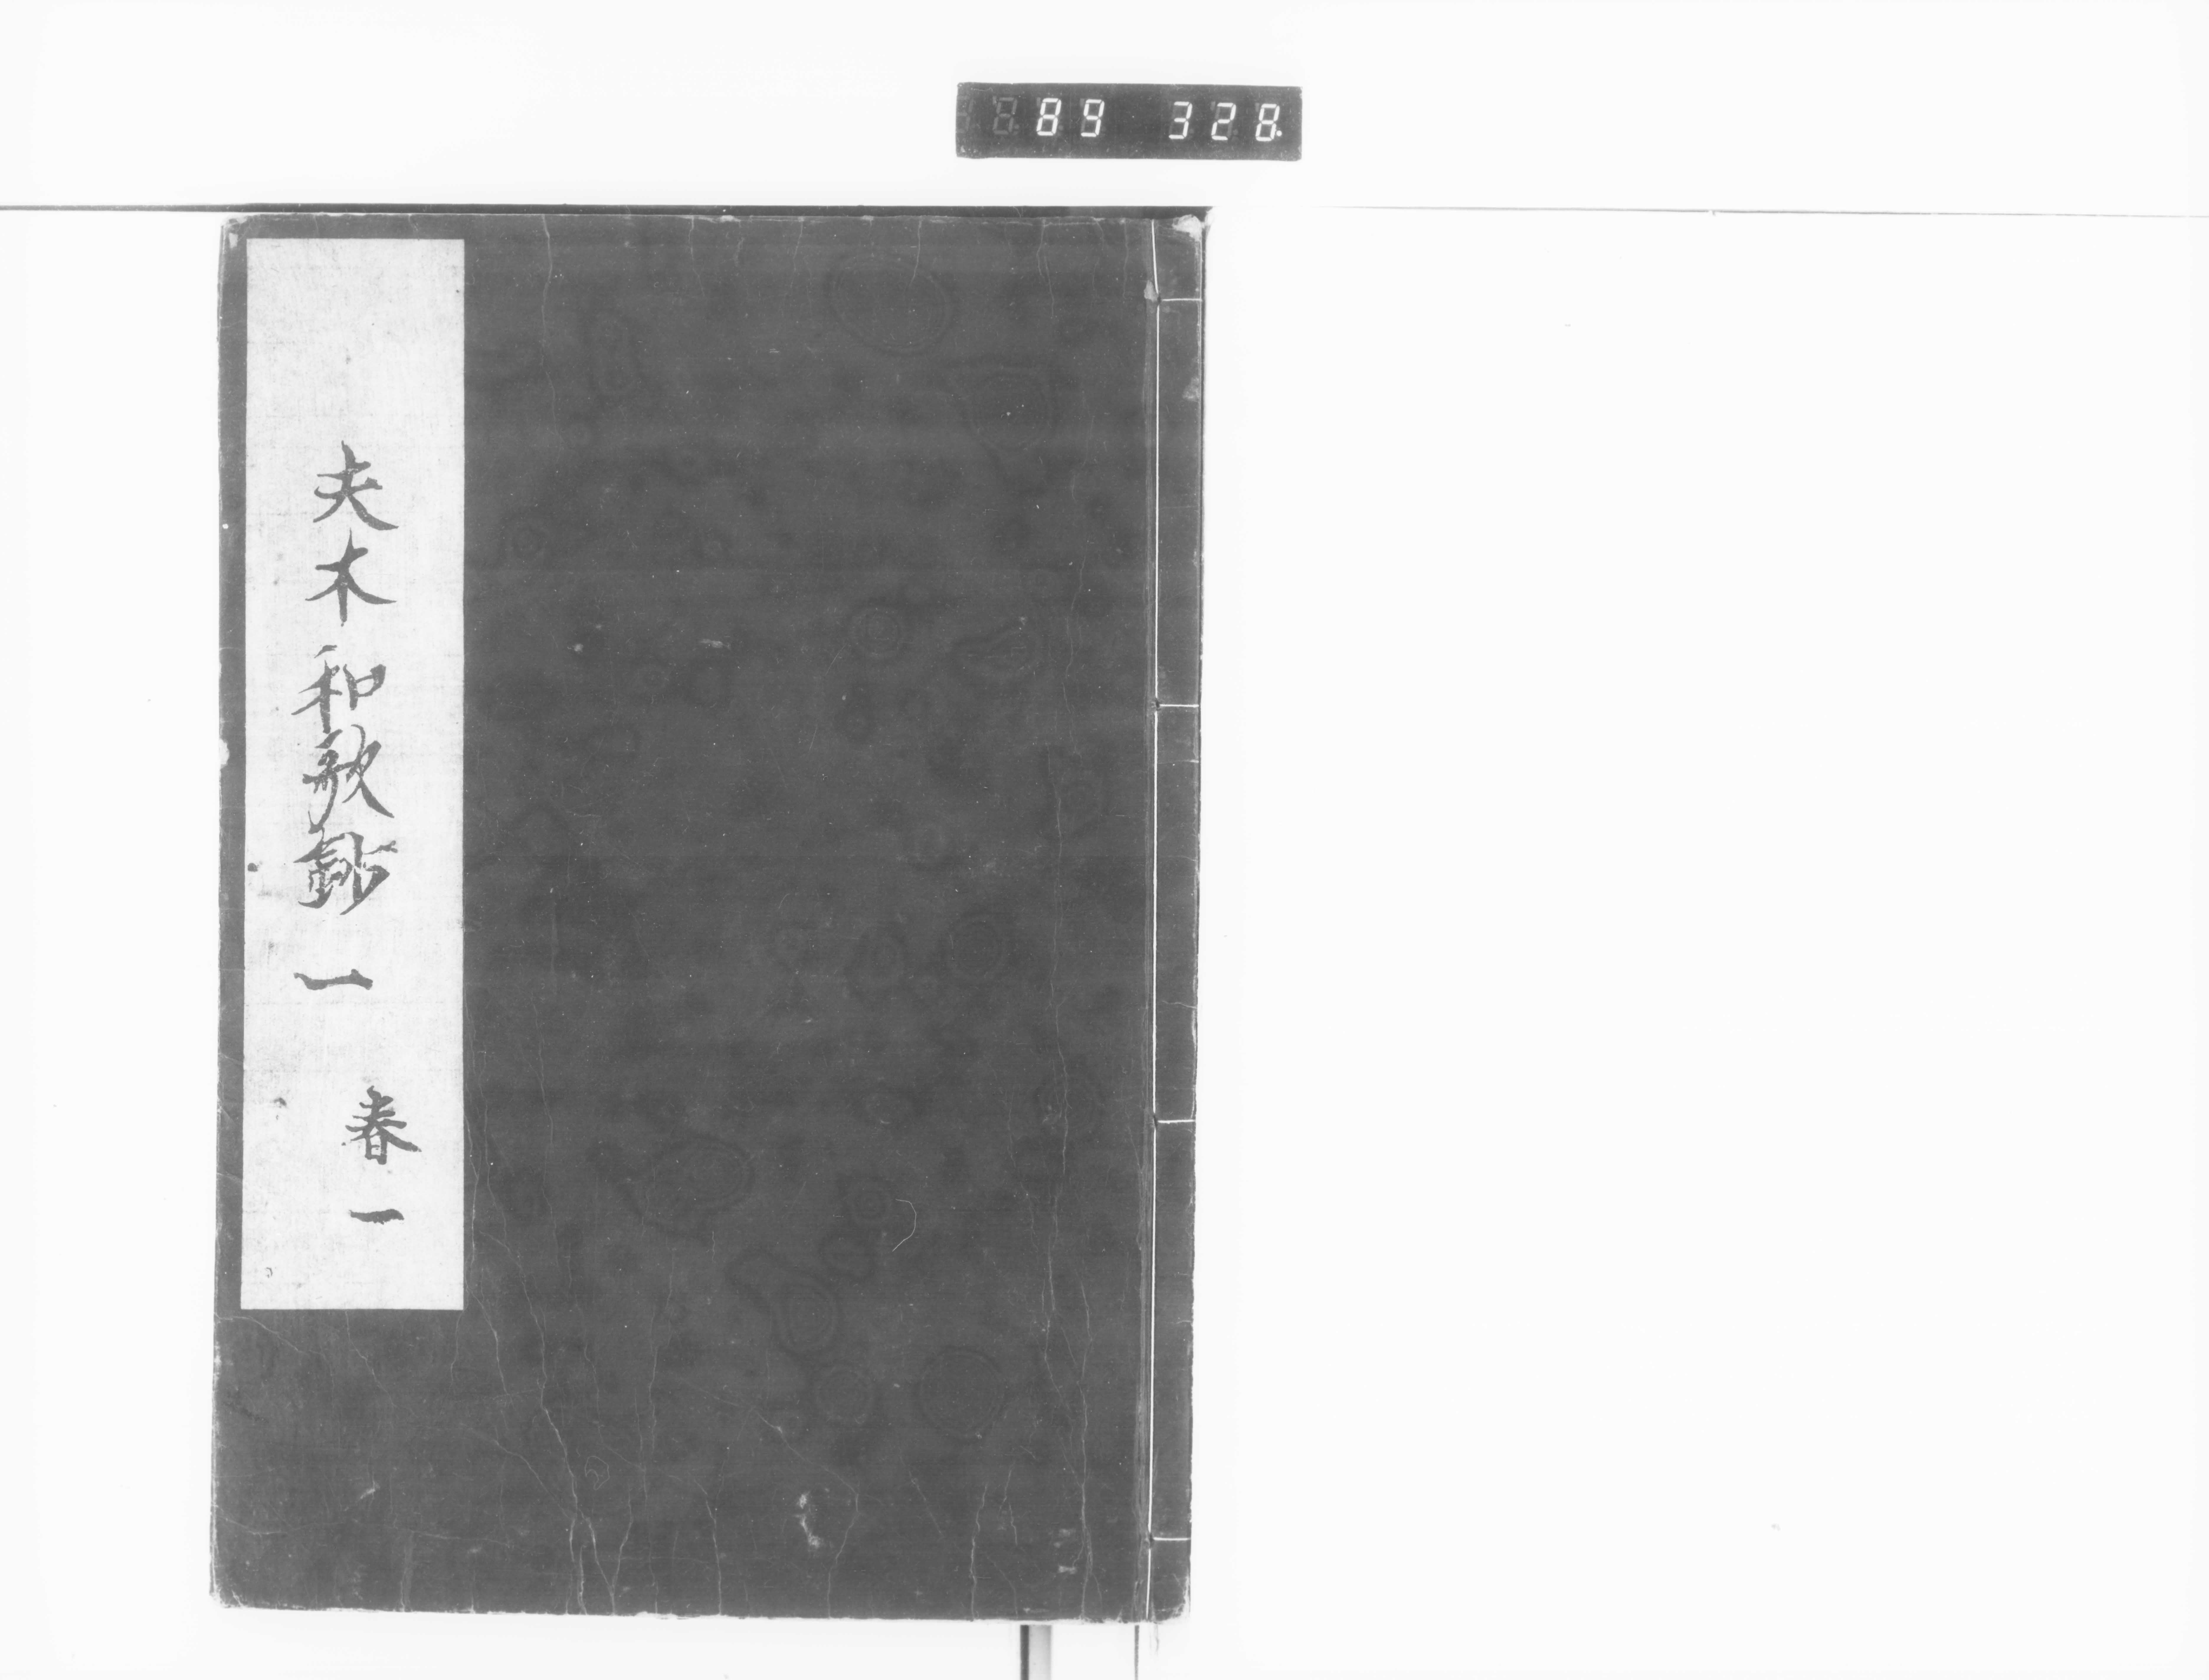 89 328.
夫木和歌鈔 一
春一